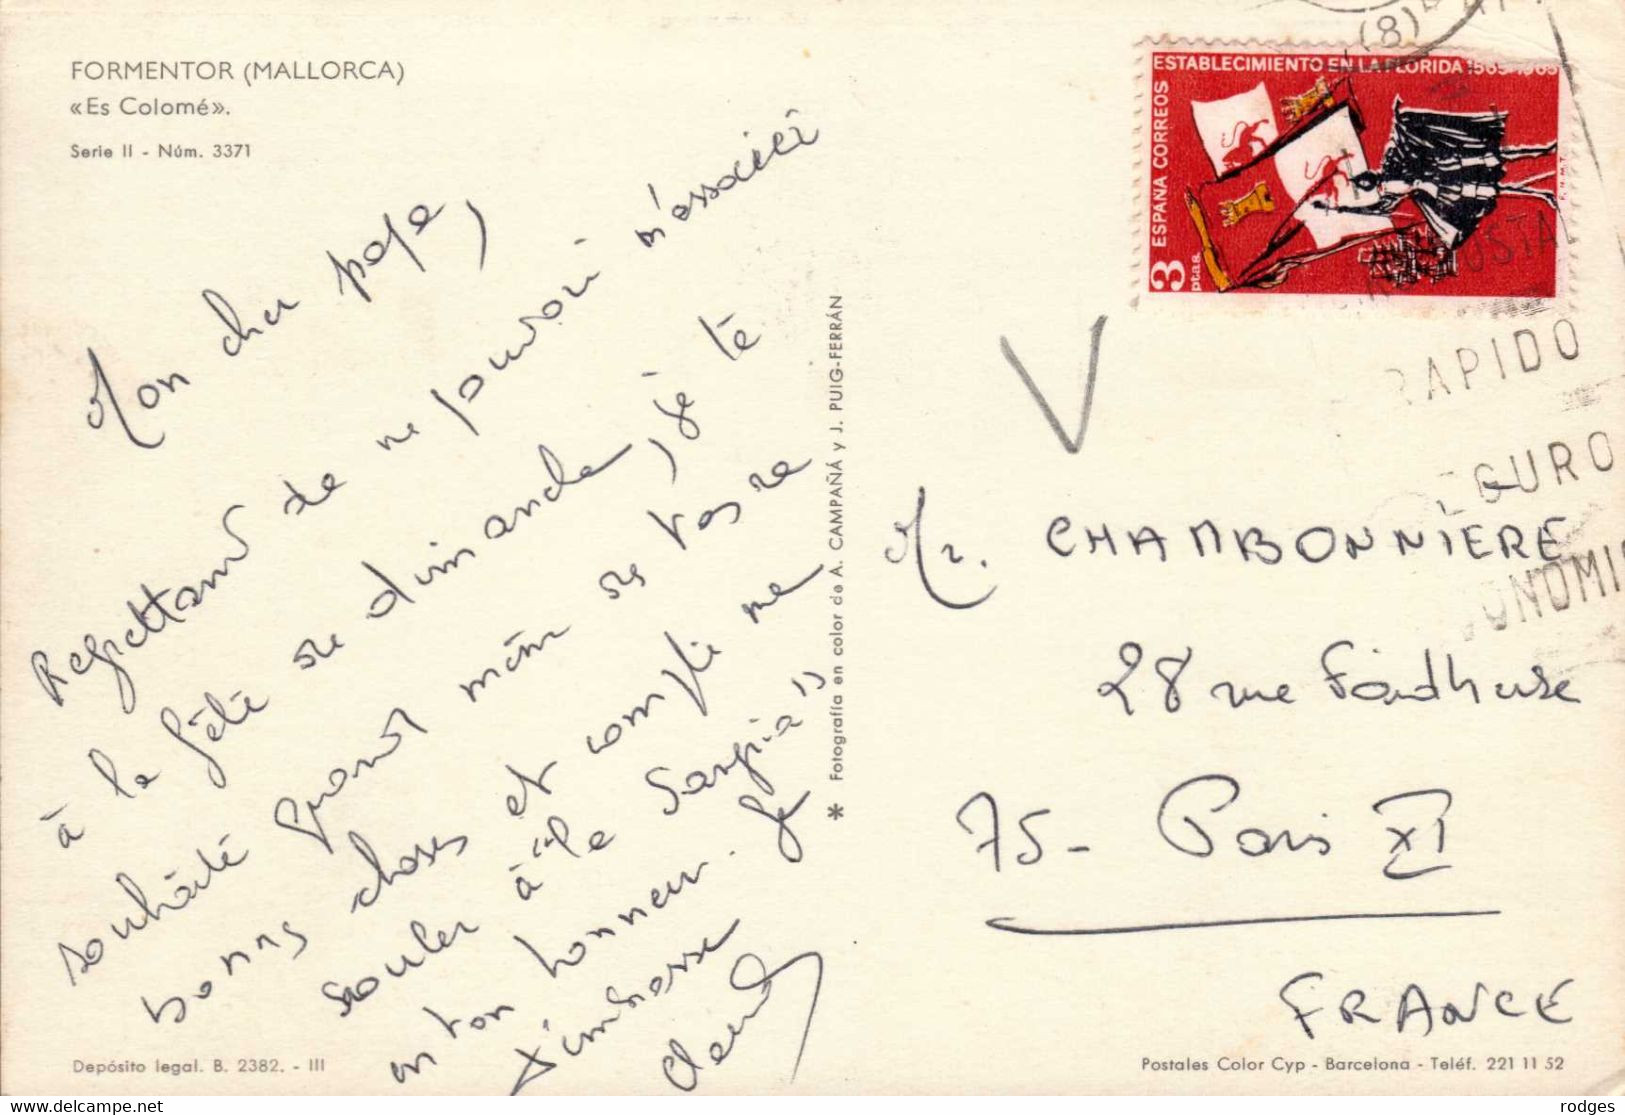 FORMENTOR (MALLORCA)
«Es Colomé».
Serie II - Núm. 3371
Mon cher papa,
Regrettant de ne pouvoir m'associer
à la fête de dimanche, je te
souhaite quand même de
bonnes choses et compte me
souler à "la Sangria"
en ton honneur. Je
t'embrasse
Depósito legal. B. 2382. - III
* Fotografía en color de A. CAMPAÑÁ y J. PUIG-FERRÁN
ESTABLECIMIENTO EN LA FLORIDA 1565-1965
ESPAÑA CORREOS
3 ptas.
F.N.M.T.
(8)
RAPIDO
EGURO
ONOMI
Mr. CHAMBONNIÈRE
28 rue
75 - Paris XI
FRANCE
Postales Color Cyp - Barcelona - Teléf. 221 11 52
rodges